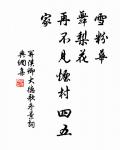 雪粉華
舞梨花
再不見煙村四五
家
關漢卿大德歌冬景詞
典網集